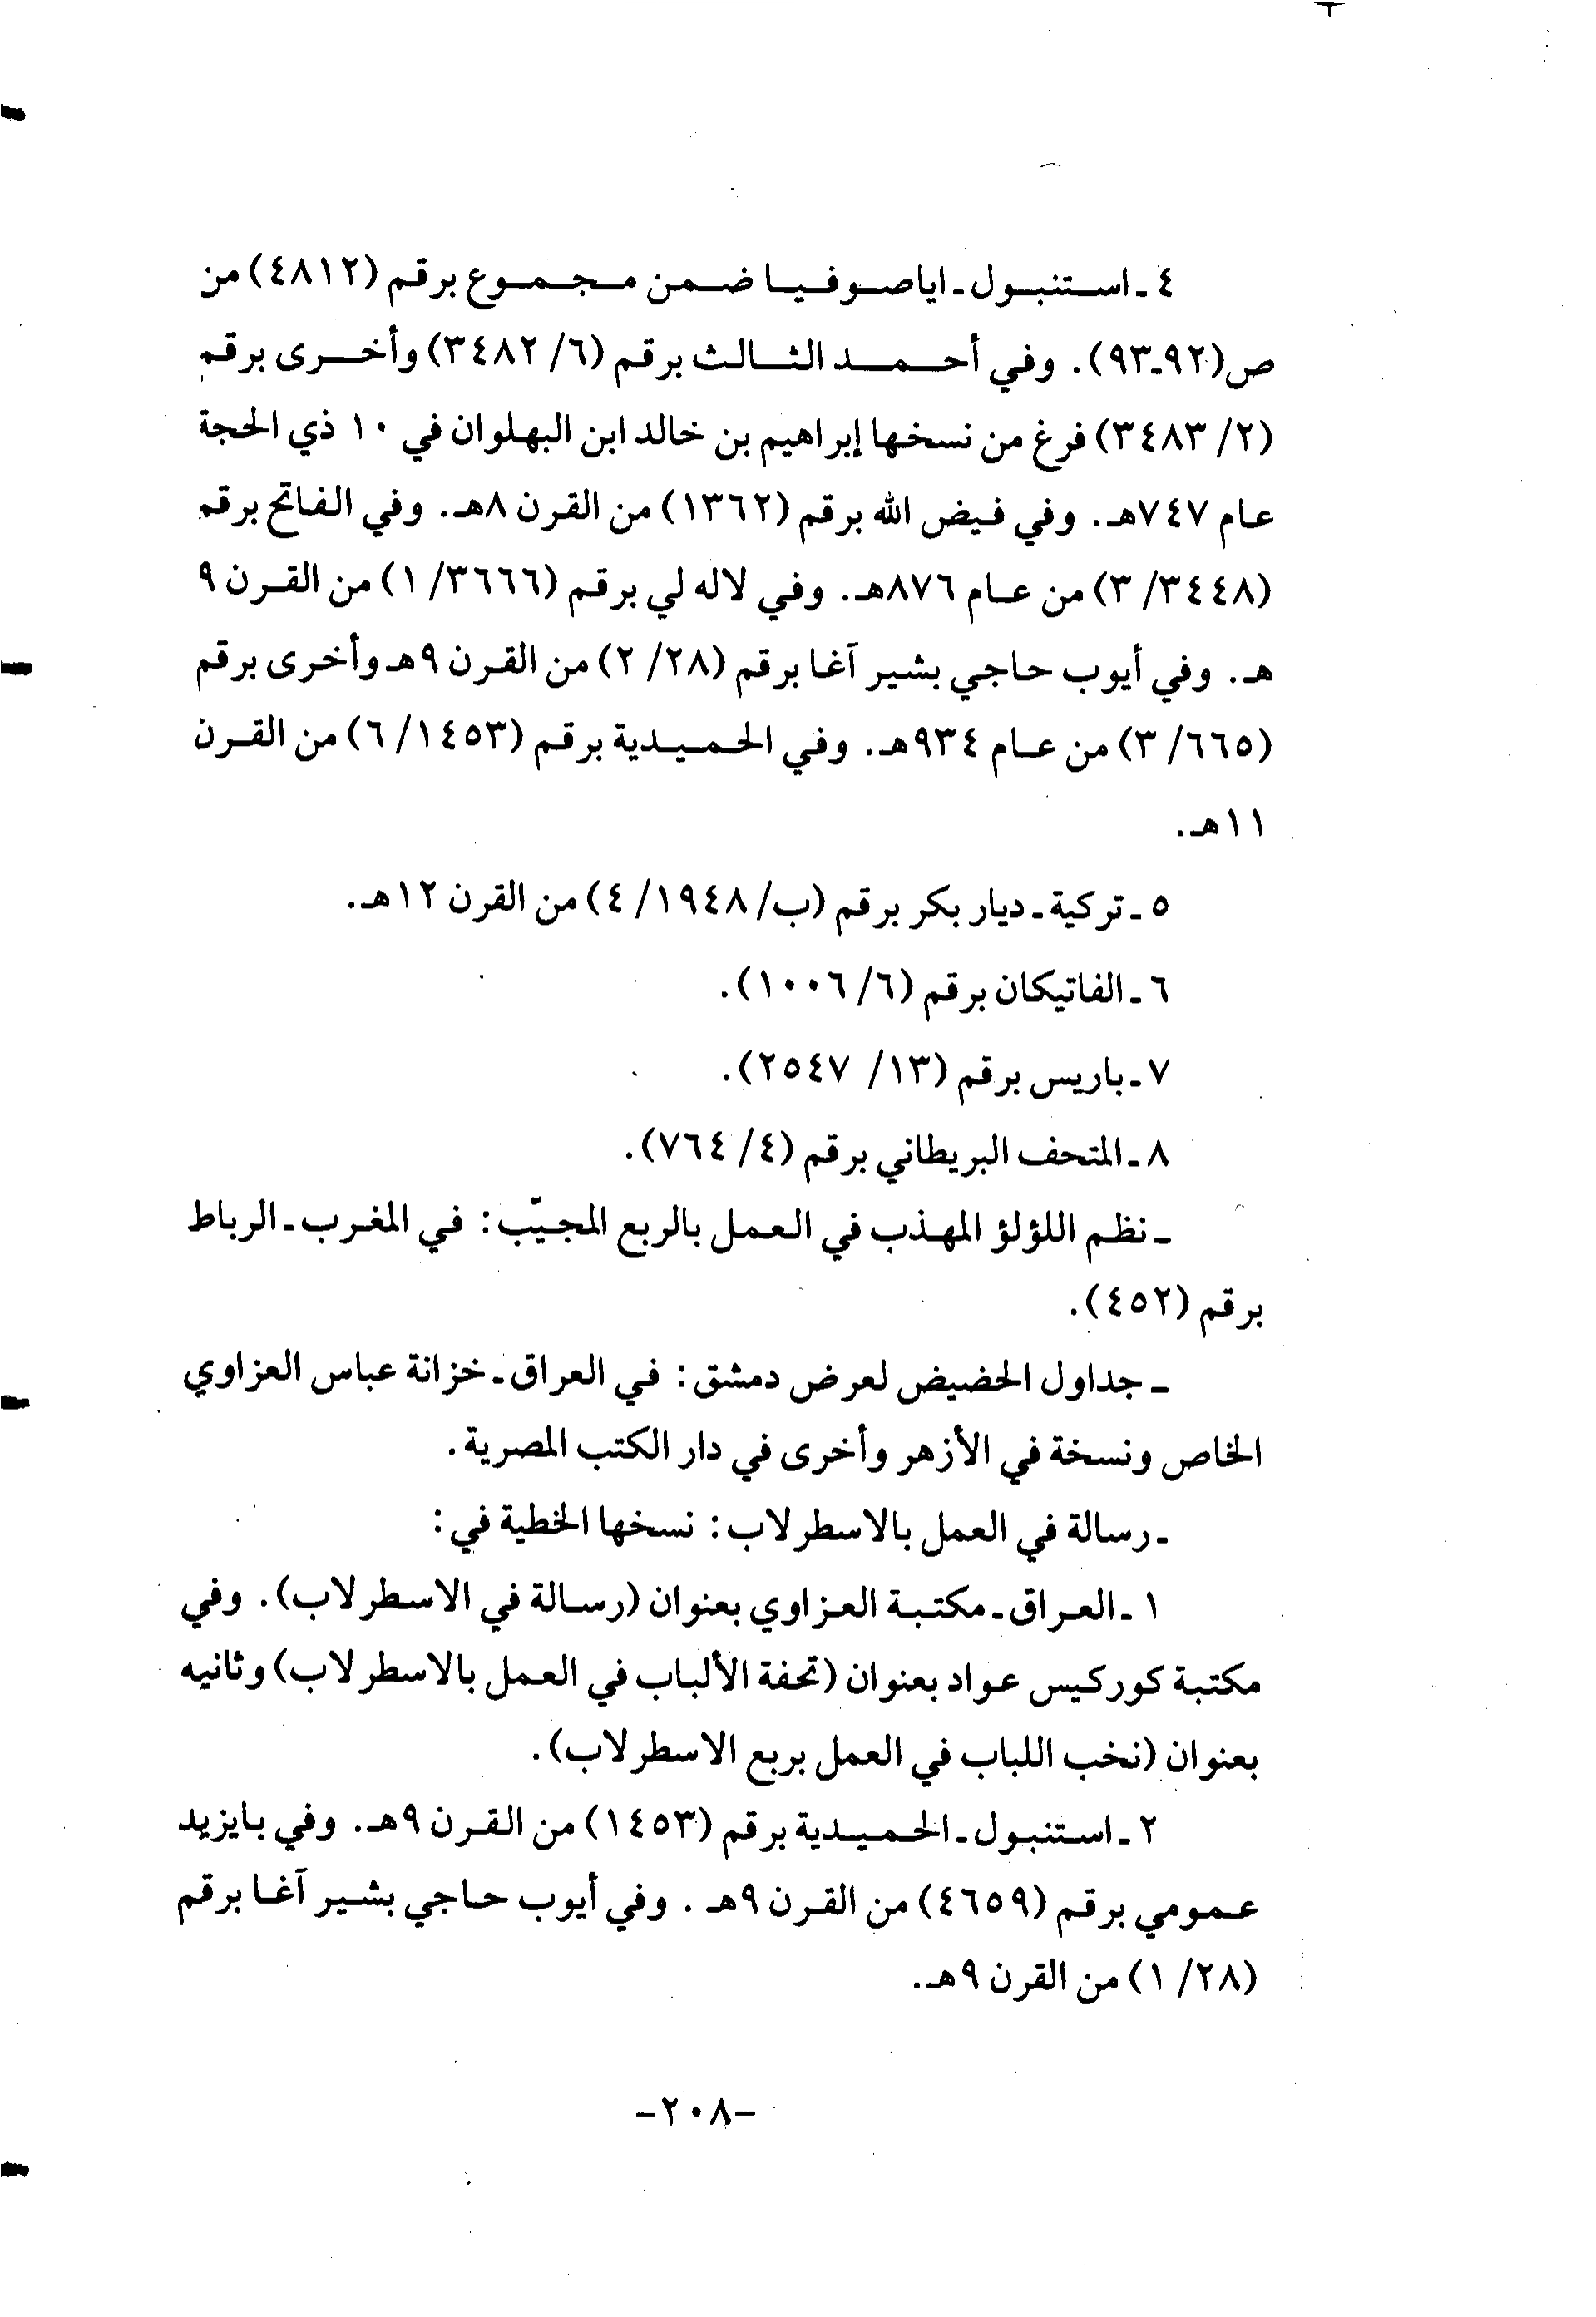 ٤ ـ استنبول ـ اياصوفيا ضمن مجموع برقم (٤٨١٢) من
ص(٩٢ـ٩٣). وفي أحمد الثالث برقم (٦/ ٣٤٨٢) وأخرى برقم
(٢/ ٣٤٨٣) فرغ من نسخها إبراهيم بن خالد ابن البهلوان في ١٠ ذي الحجة
عام ٧٤٧هـ. وفي فيض الله برقم (١٣٦٢) من القرن ٨هـ. وفي الفاتح برقم
(٣٤٤٨/ ٣) من عام ٨٧٦هـ. وفي لاله لي برقم (٣٦٦٦/ ١) من القرن ٩
هـ. وفي أيوب حاجي بشير آغا برقم (٢٨/ ٢) من القرن ٩هـ وأخرى برقم
(٦٦٥/ ٣) من عام ٩٣٤هـ. وفي الحميدية برقم (١٤٥٣/ ٦) من القرن
١١هـ.
٥ ـ تركية ـ ديار بكر برقم (ب/ ١٩٤٨/ ٤) من القرن ١٢هـ.
٦ ـ الفاتيكان برقم (٦/ ١٠٠٦).
٧ ـ باريس برقم (١٣/ ٢٥٤٧).
٨ ـ المتحف البريطاني برقم (٤/ ٧٦٤).
ـ نظم اللؤلؤ المهذب في العمل بالربع المجيّب: في المغرب ـ الرباط
برقم (٤٥٢).
ـ جداول الحضيض لعرض دمشق: في العراق ـ خزانة عباس العزاوي
الخاص ونسخة في الأزهر وأخرى في دار الكتب المصرية.
ـ رسالة في العمل بالاسطرلاب: نسخها الخطية في:
١ ـ العراق ـ مكتبة العزاوي بعنوان (رسالة في الاسطرلاب). وفي
مكتبة كوركيس عواد بعنوان (تحفة الألباب في العمل بالاسطرلاب) وثانيه
بعنوان (نخب اللباب في العمل بربع الاسطرلاب).
٢ ـ استنبول ـ الحميدية برقم (١٤٥٣) من القرن ٩هـ. وفي بايزيد
عمومي برقم (٤٦٥٩) من القرن ٩هـ . وفي أيوب حاجي بشير آغا برقم
(٢٨/ ١) من القرن ٩هـ.
-٢٠٨-